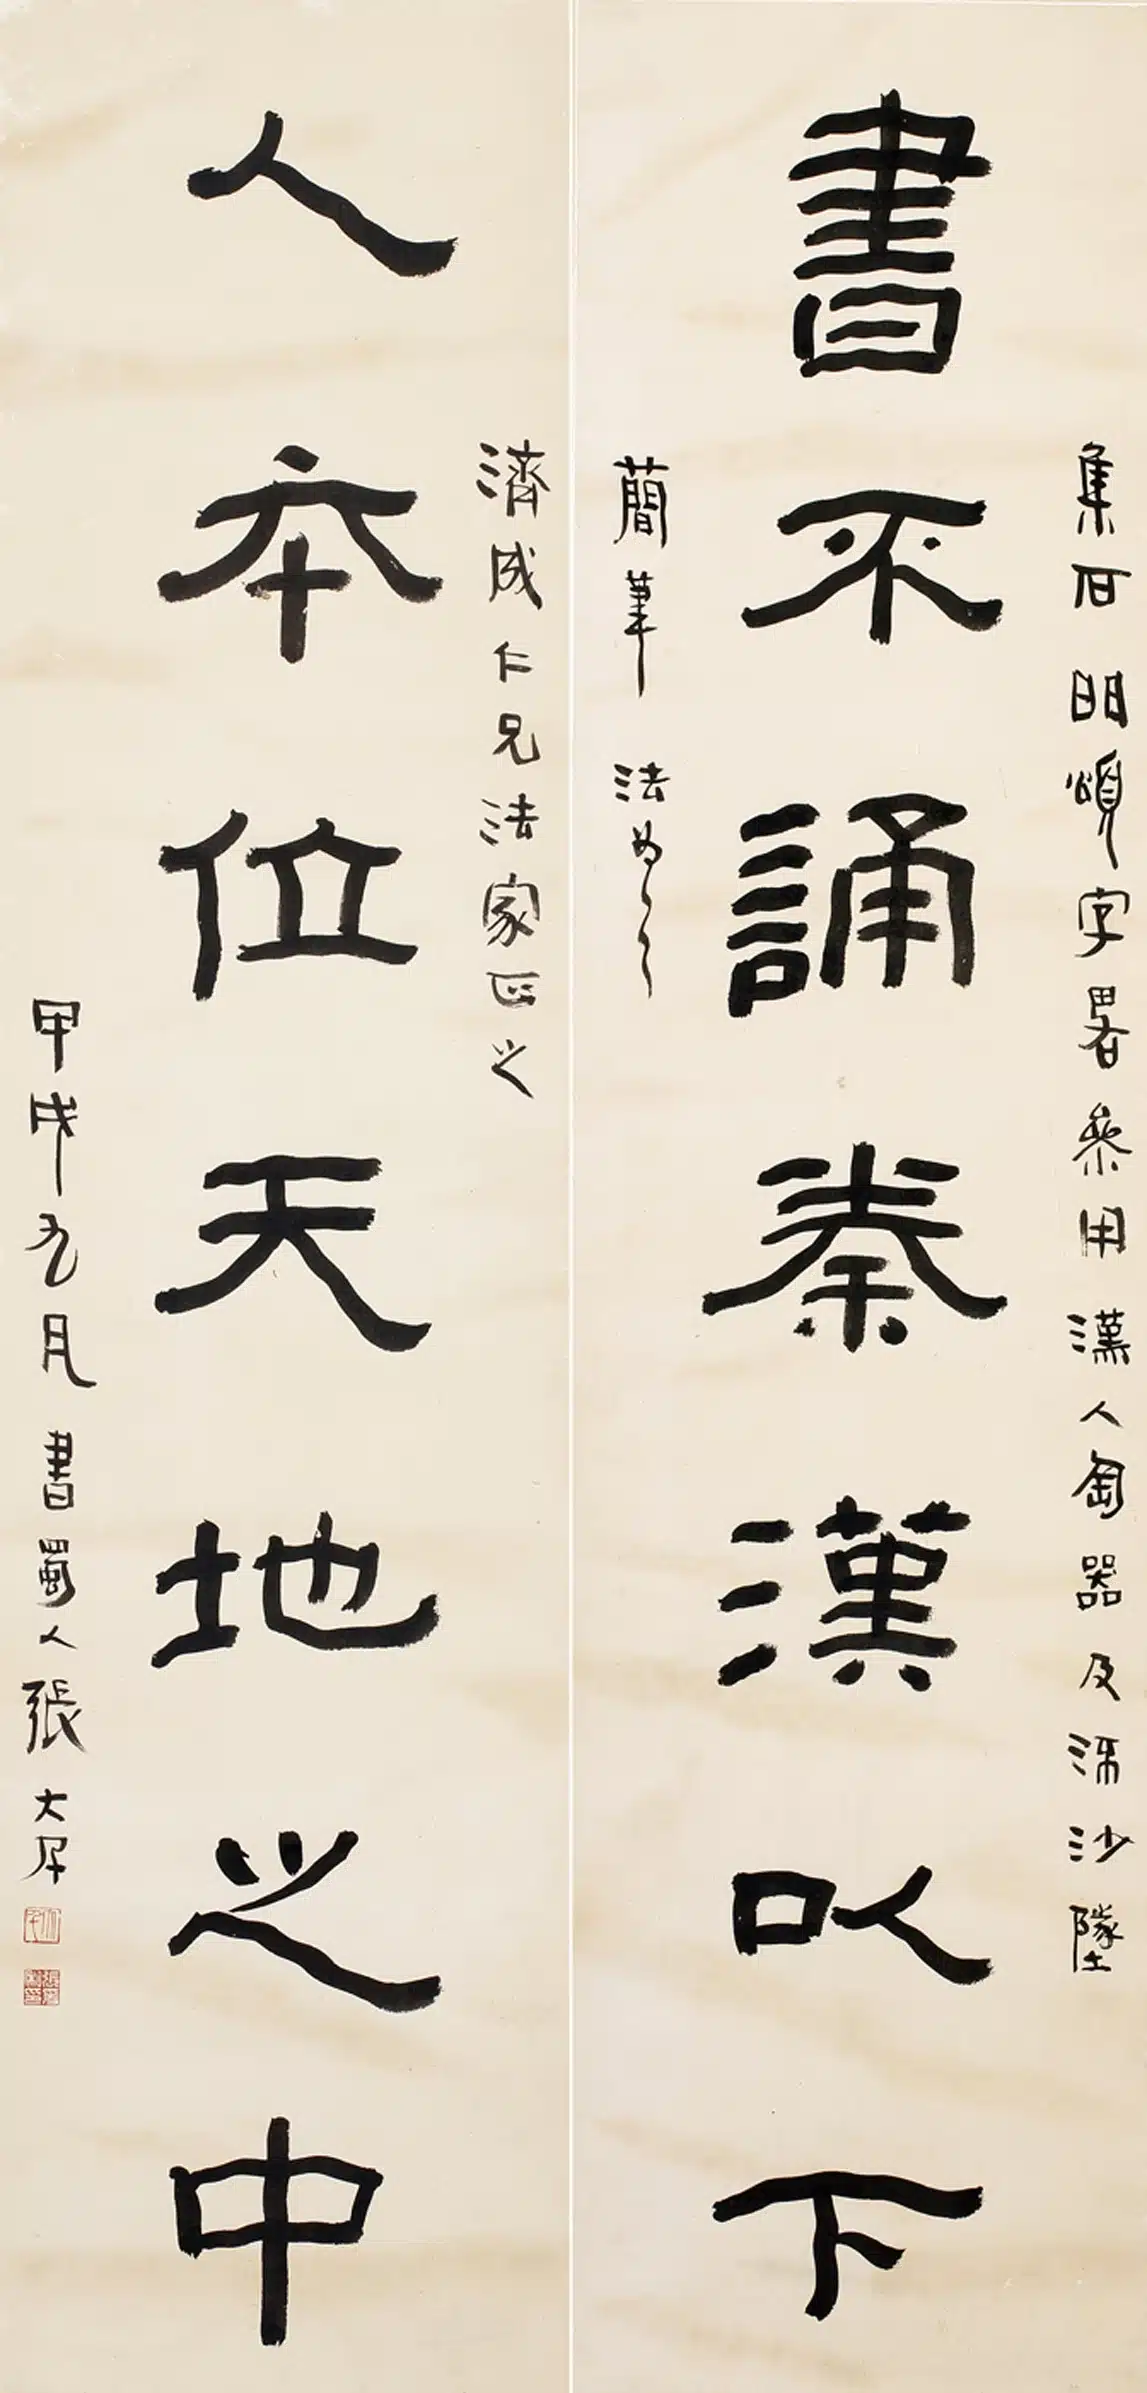 集石門頌字畧參用漢人匋器及流沙墜
書不誦秦漢以下
簡筆法為之
濟成仁兄法家正之
人本位天地之中
甲戌九月書蜀人張大千